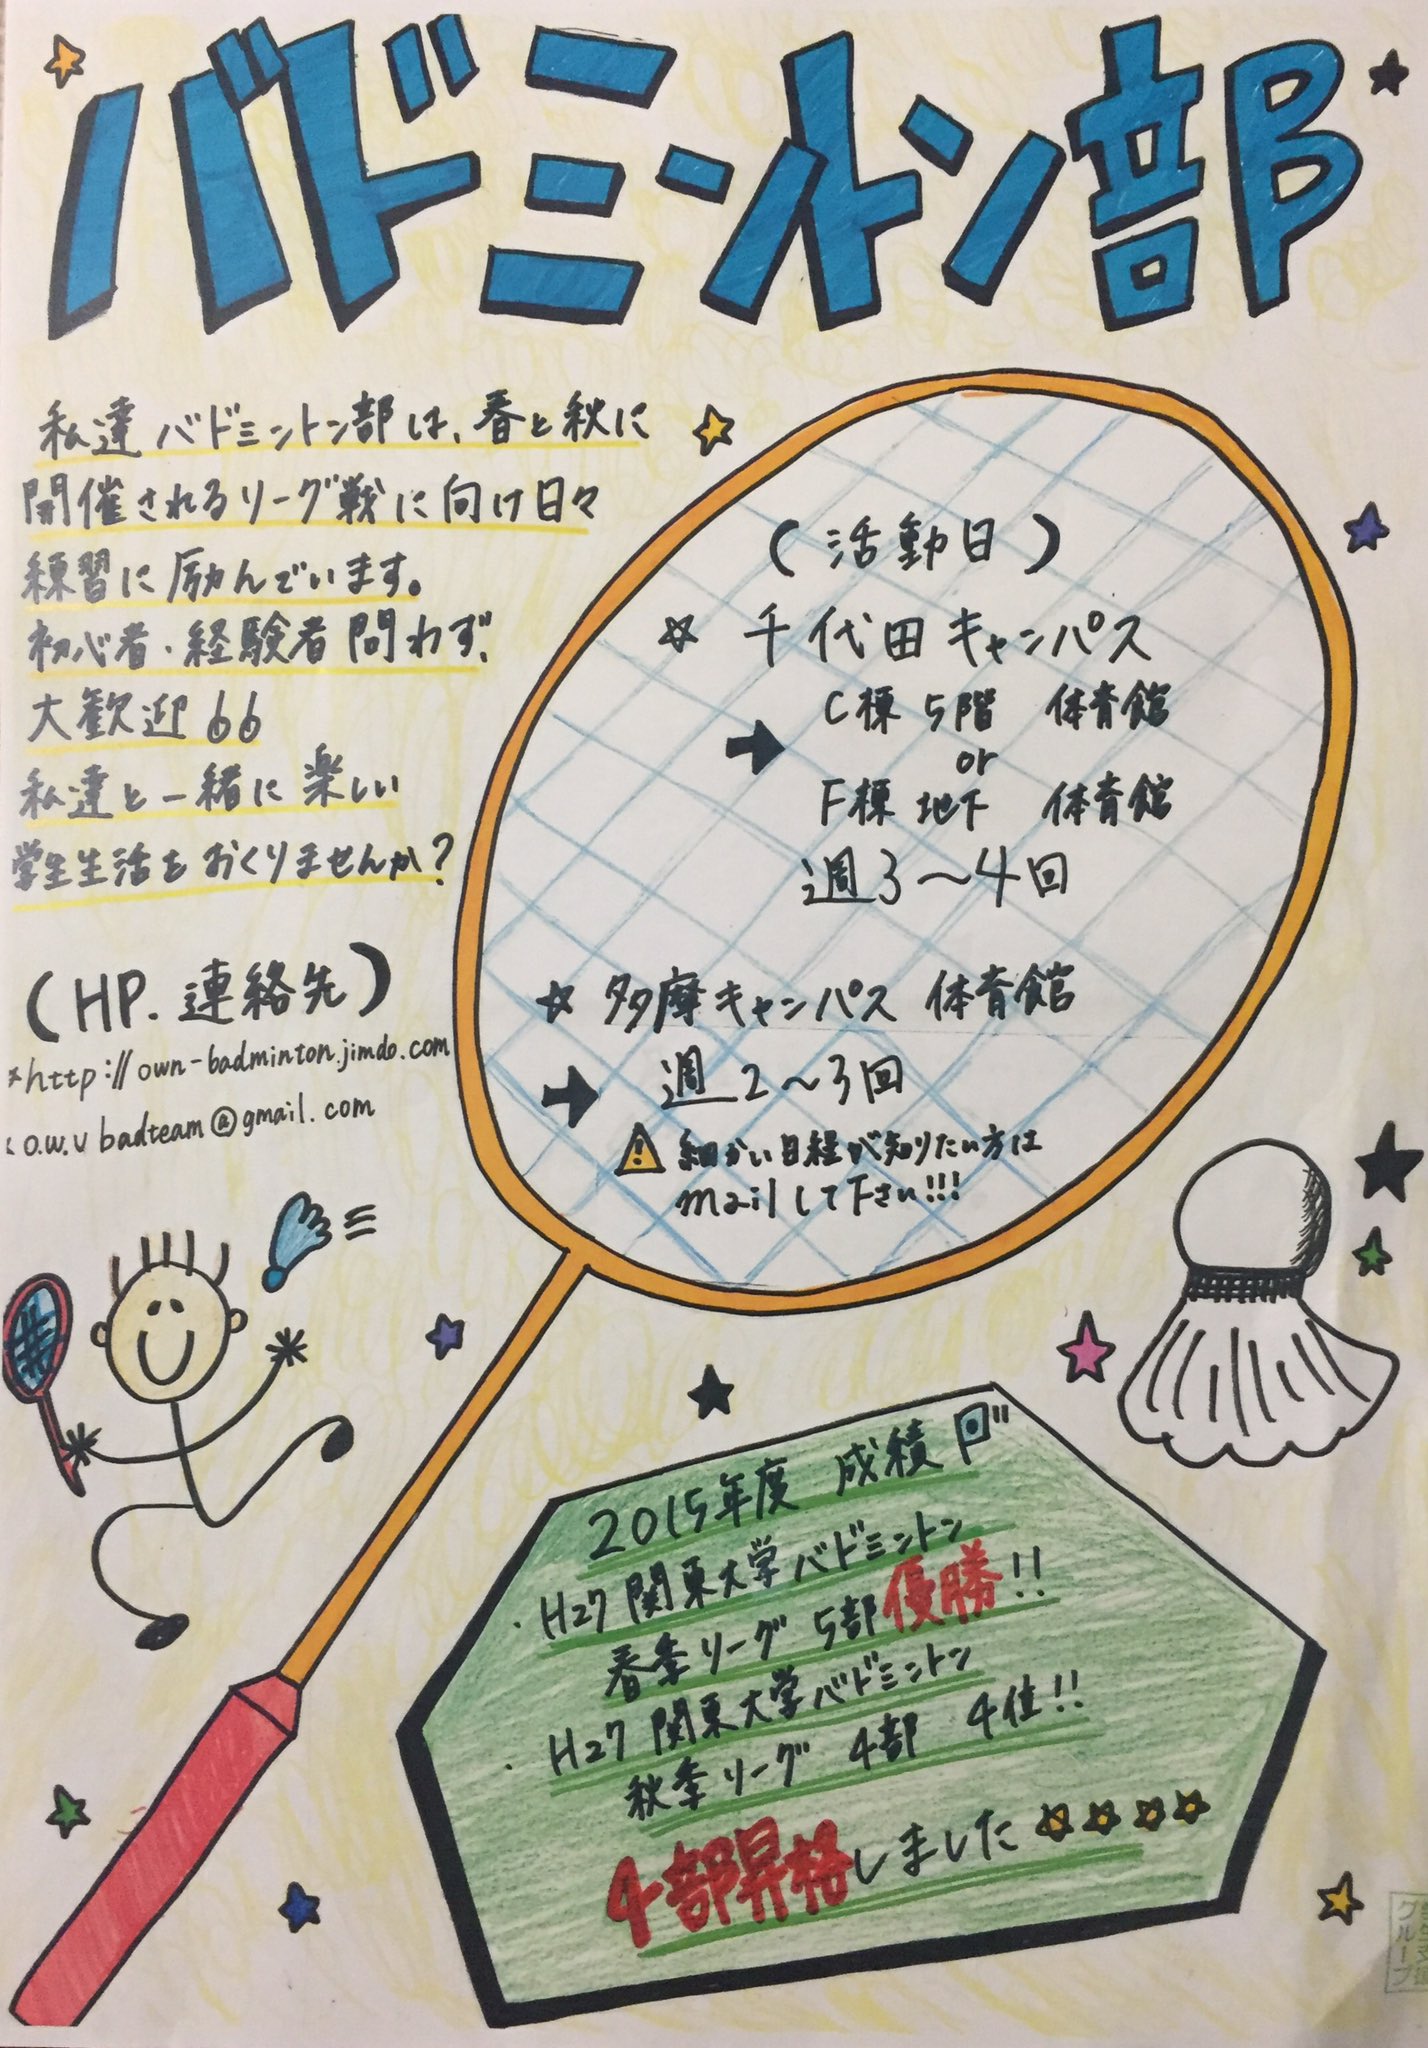 バドミントン部
私達バドミントン部は、春と秋に
開催されるリーグ戦に向け日々
練習に励んでいます。
初心者・経験者問わず、
大歓迎66
私達と一緒に楽しい
学生生活をおくりませんか?
(HP.連絡先)
http://own-badminton.jimdo.com
o.w.u badteam@gmail.com
(活動日)
☆ 千代田キャンパス
➡ C棟5階 体育館
or
F棟地下 体育館
週3〜4回
☆ 多摩キャンパス 体育館
➡ 週2〜3回
⚠ 細かい日程が知りたい方は
mailして下さい!!!
2015年度 成績
・H27関東大学バドミントン
春季リーグ 5部優勝!!
・H27関東大学バドミントン
秋季リーグ 4部 4位!!
4部昇格しました☆☆☆☆
グループ